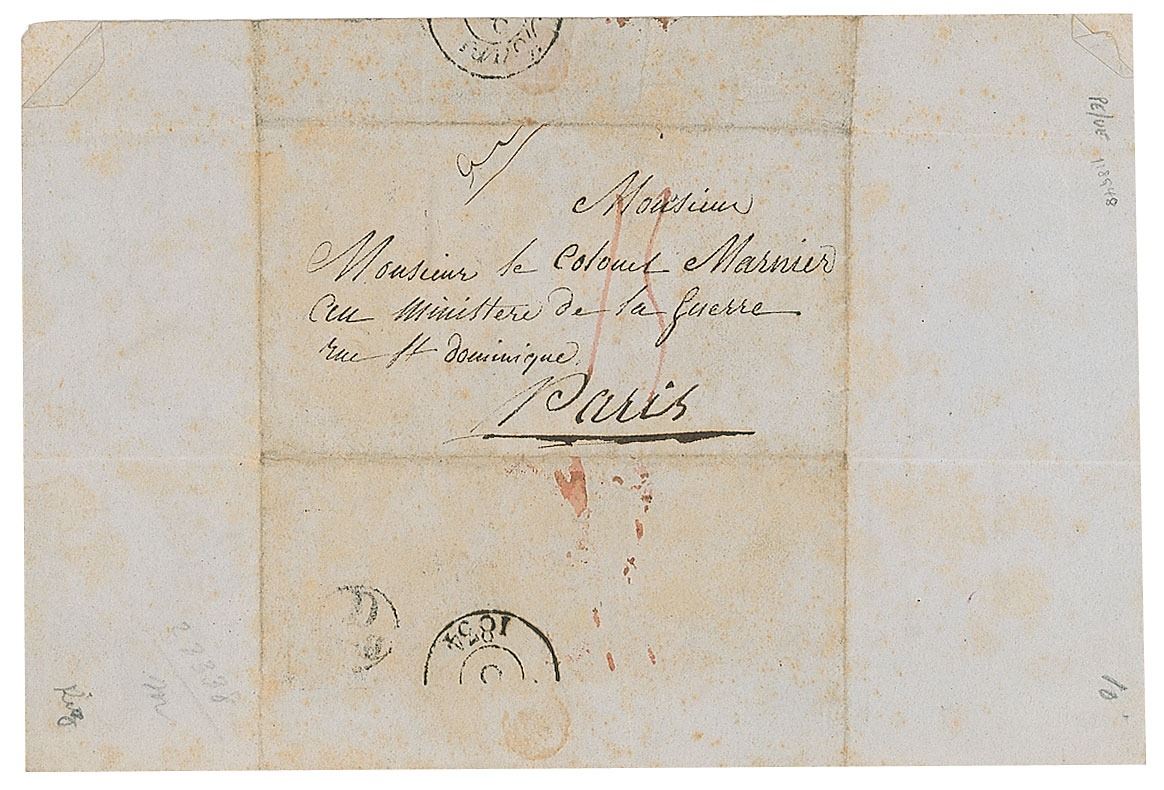 Monsieur
Monsieur le Colonel Marnier
au Ministere de la Guerre
rue St dominique
Paris
1834
118948
10